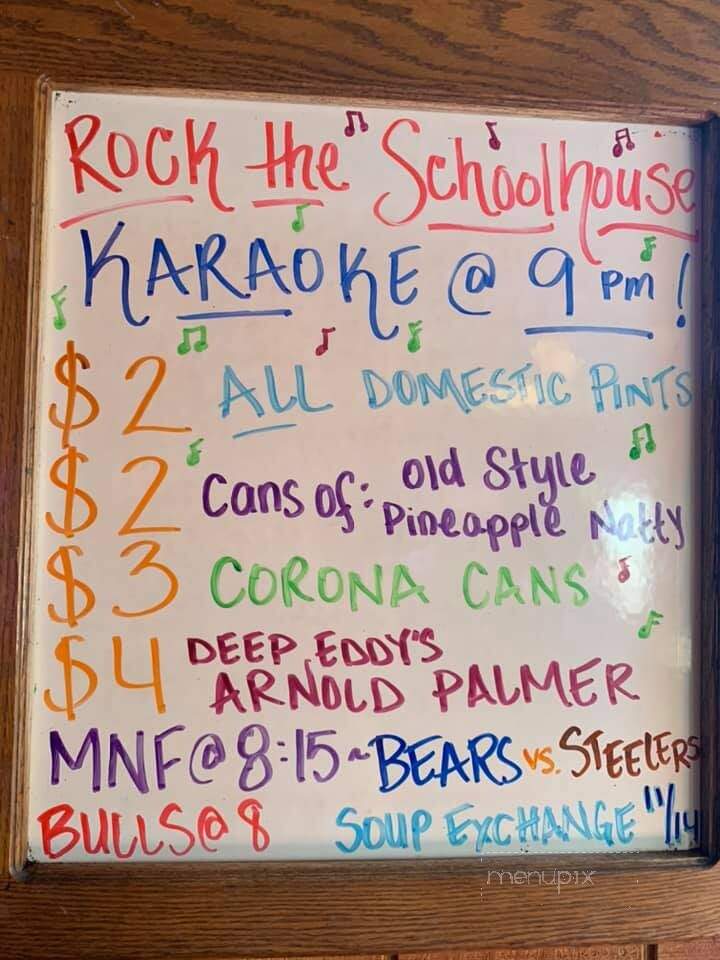 Rock the Schoolhouse
KARAOKE @ 9 pm!
$2 ALL DOMESTIC PINTS
$2 Cans of: Old Style
Pineapple Natty
$3 CORONA CANS
$4 DEEP EDDY'S
ARNOLD PALMER
MNF@8:15~BEARS vs. STEELERS
BULLS@8 SOUP EXCHANGE 11/14
menupix